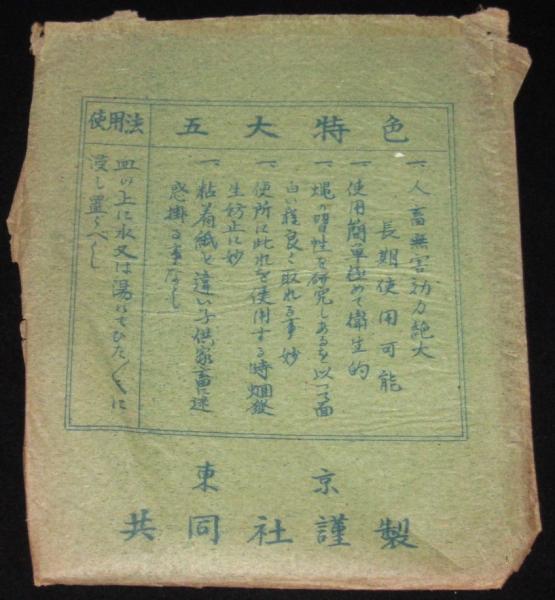 五大特色
一、人畜無害効力絶大
長期使用可能
一、使用簡単極めて衛生的
一、蝿の習性を研究しあるを以つて面
白い程良く取れる事妙
一、便所に此れを使用する時蛆發
生防止に妙
一、粘着紙と違い子供家畜に迷
惑掛る事なし
使用法
皿の上に水又は湯にてひた〳〵に
浸し置くべし
東京
共同社謹製